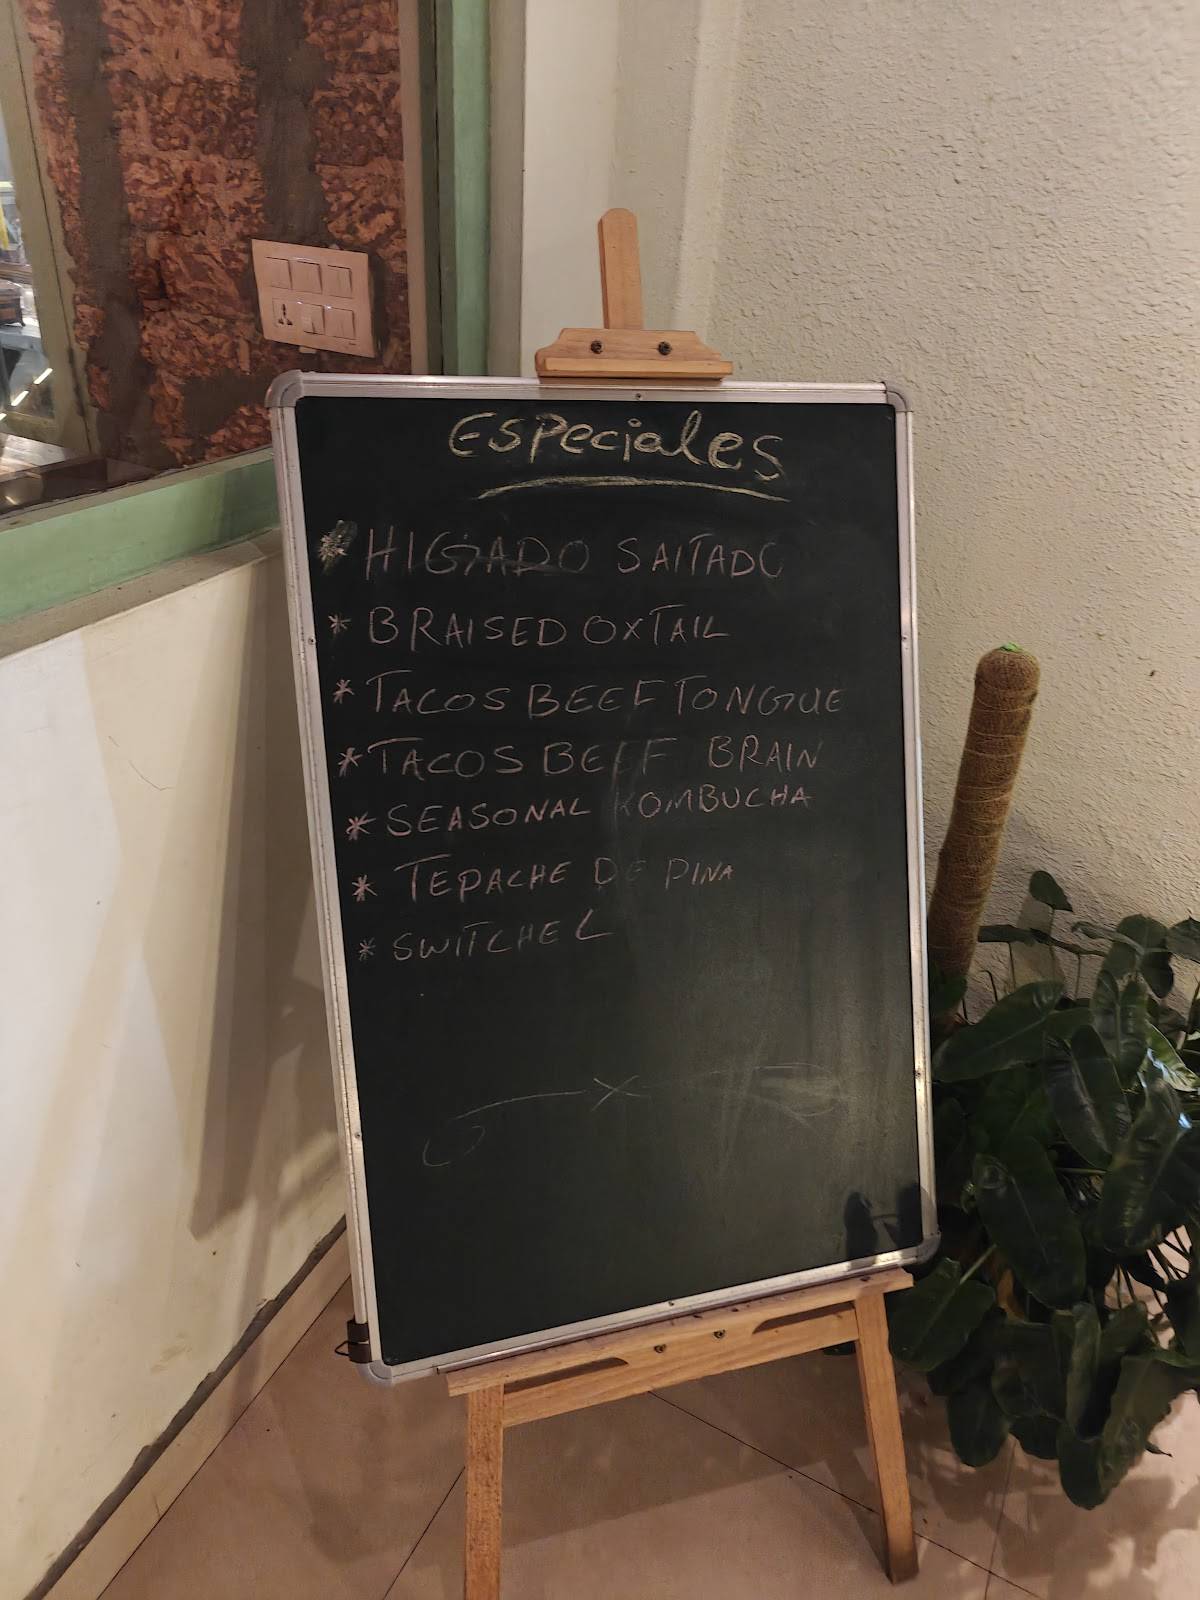 Especiales
* HIGADO SALTADO
* BRAISED OXTAIL
* TACOS BEEF TONGUE
* TACOS BEEF BRAIN
* SEASONAL KOMBUCHA
* TEPACHE DE PINA
* SWITCHEL